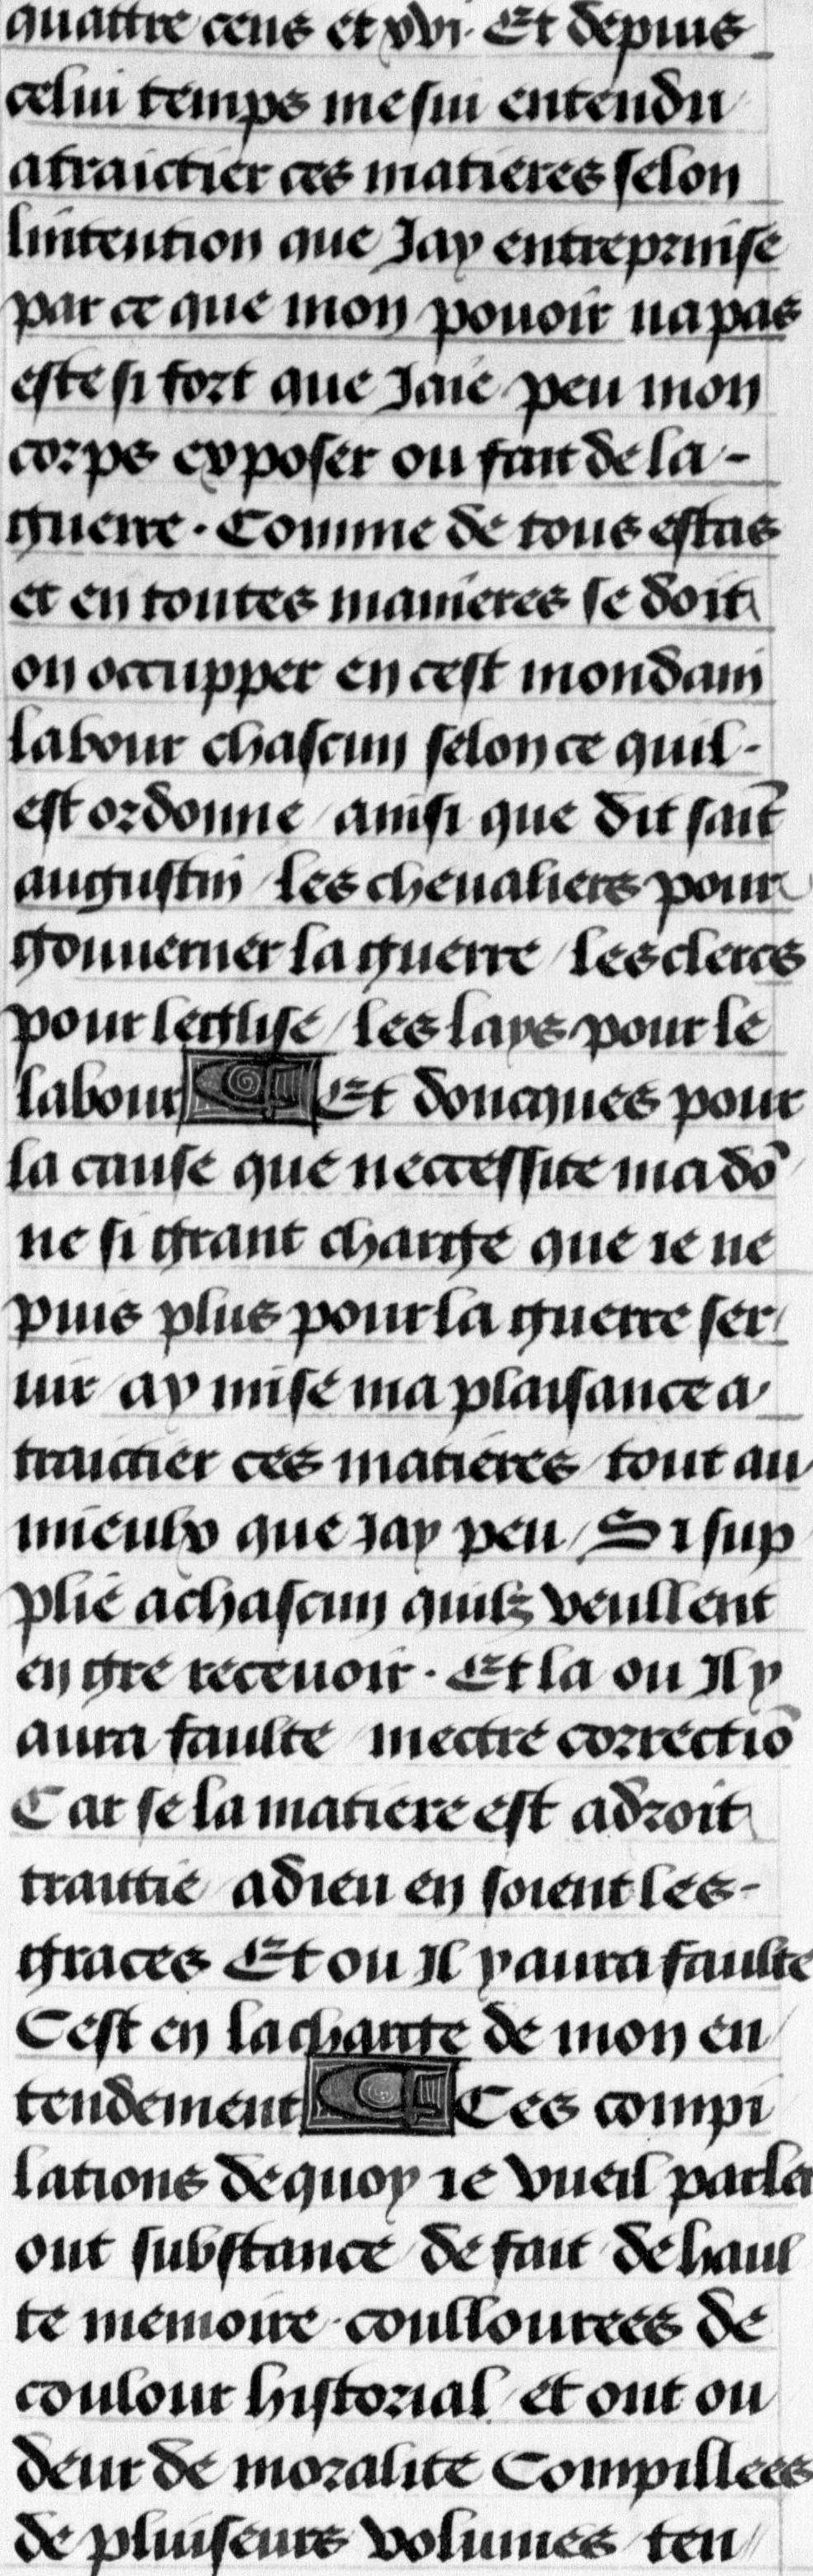 quattre cens et xvi. Et depuis
celui temps me sui entendu
atraictier ces matieres selon
lintention que Jay entreprinse
par ce que mon pouoir na pas
este si fort que Jaie peu mon
corps exposer ou fait de la -
guerre. Comme de tous estas
et en toutes manieres se doit
on occupper en cest mondain
labour chascun selon ce quil -
est ordonne / ainsi que dit sait̄
augustin / les cheualiers pour
gouuerner la guerre / les clercs
pour leglise / les lays pour le
labour Et doncques pour
la cause que neccessite ma dō
ne si grant charge que ie ne
puis plus pour la guerre ser/
uir ay mise ma plaisance a
traictier ces matieres / tout au
mieulx que Jay peu / Si sup
plie a chascun quilz veullent
en gre receuoir. Et la ou Il y
aura faulte mectre correctiō
Car se la matiere est adroit
traittie adieu en soient les -
graces Et ou Il y aura faulte
Cest en la charge de mon en/
tendement Ces compi
lations de quoy ie vueil parler
ont substance de fait de haul
te memoire. coullourees de
coulour historial et ont ou
deur de moralite Compillees
de pluiseurs volumes / ten//